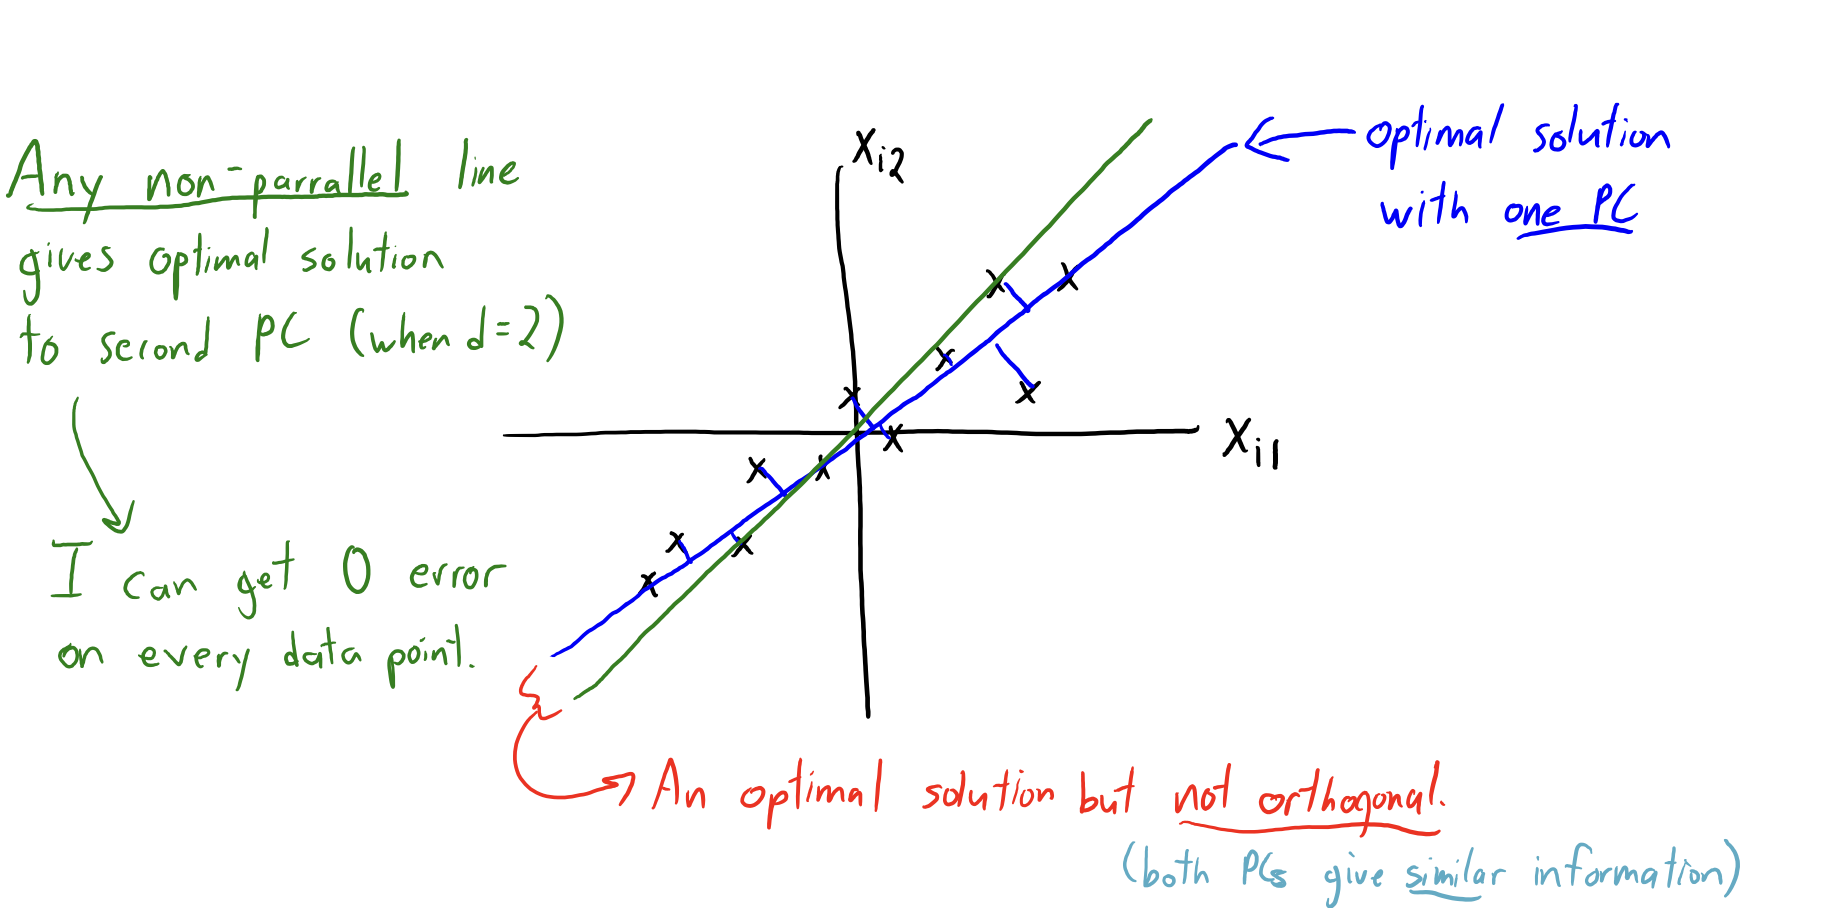 Any non-parrallel line
gives optimal solution
to second PC (when d=2)
I can get 0 error
on every data point.
Xi2
Xi1
optimal solution
with one PC
An optimal solution but not orthogonal.
(both PCs give similar information)